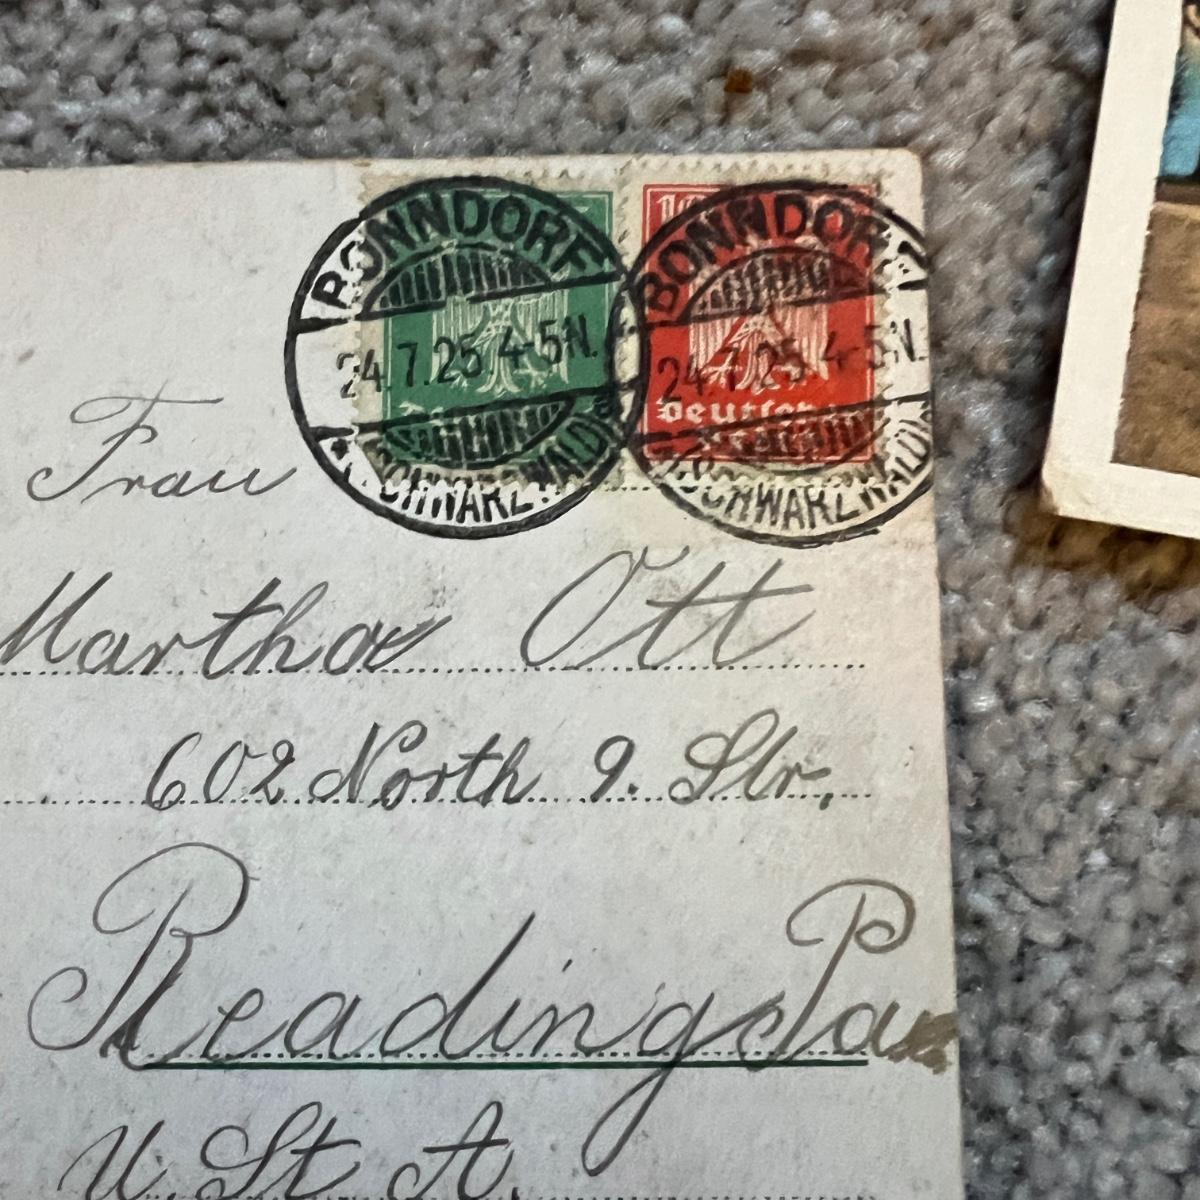 BONNDORF
24.7.25 4-5N.
(SCHWARZWALD)
BONNDORF
24.7.25 4-5N.
(SCHWARZWALD)
10
Deutsches
Frau
Martha Ott
602 North 9. Str.
Reading Pa
U. St A.